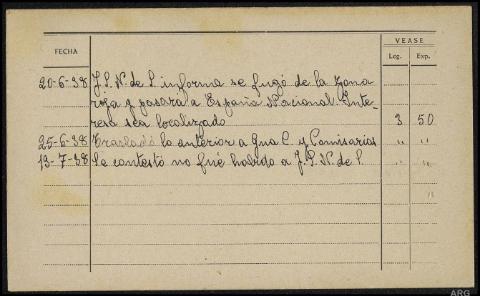 VEASE
FECHA Leg. Exp.
20-6-38 J.P.N. de P. informa se fugó de la zona
roja y pasara a España Nacional. Inte-
resa sea localizado 3 50
25-6-38 Trasladó lo anterior a Gua C. y Comisarias " "
13-7-38 Se contestó no fue habido a J.P.N. de P. " "
"
ARG